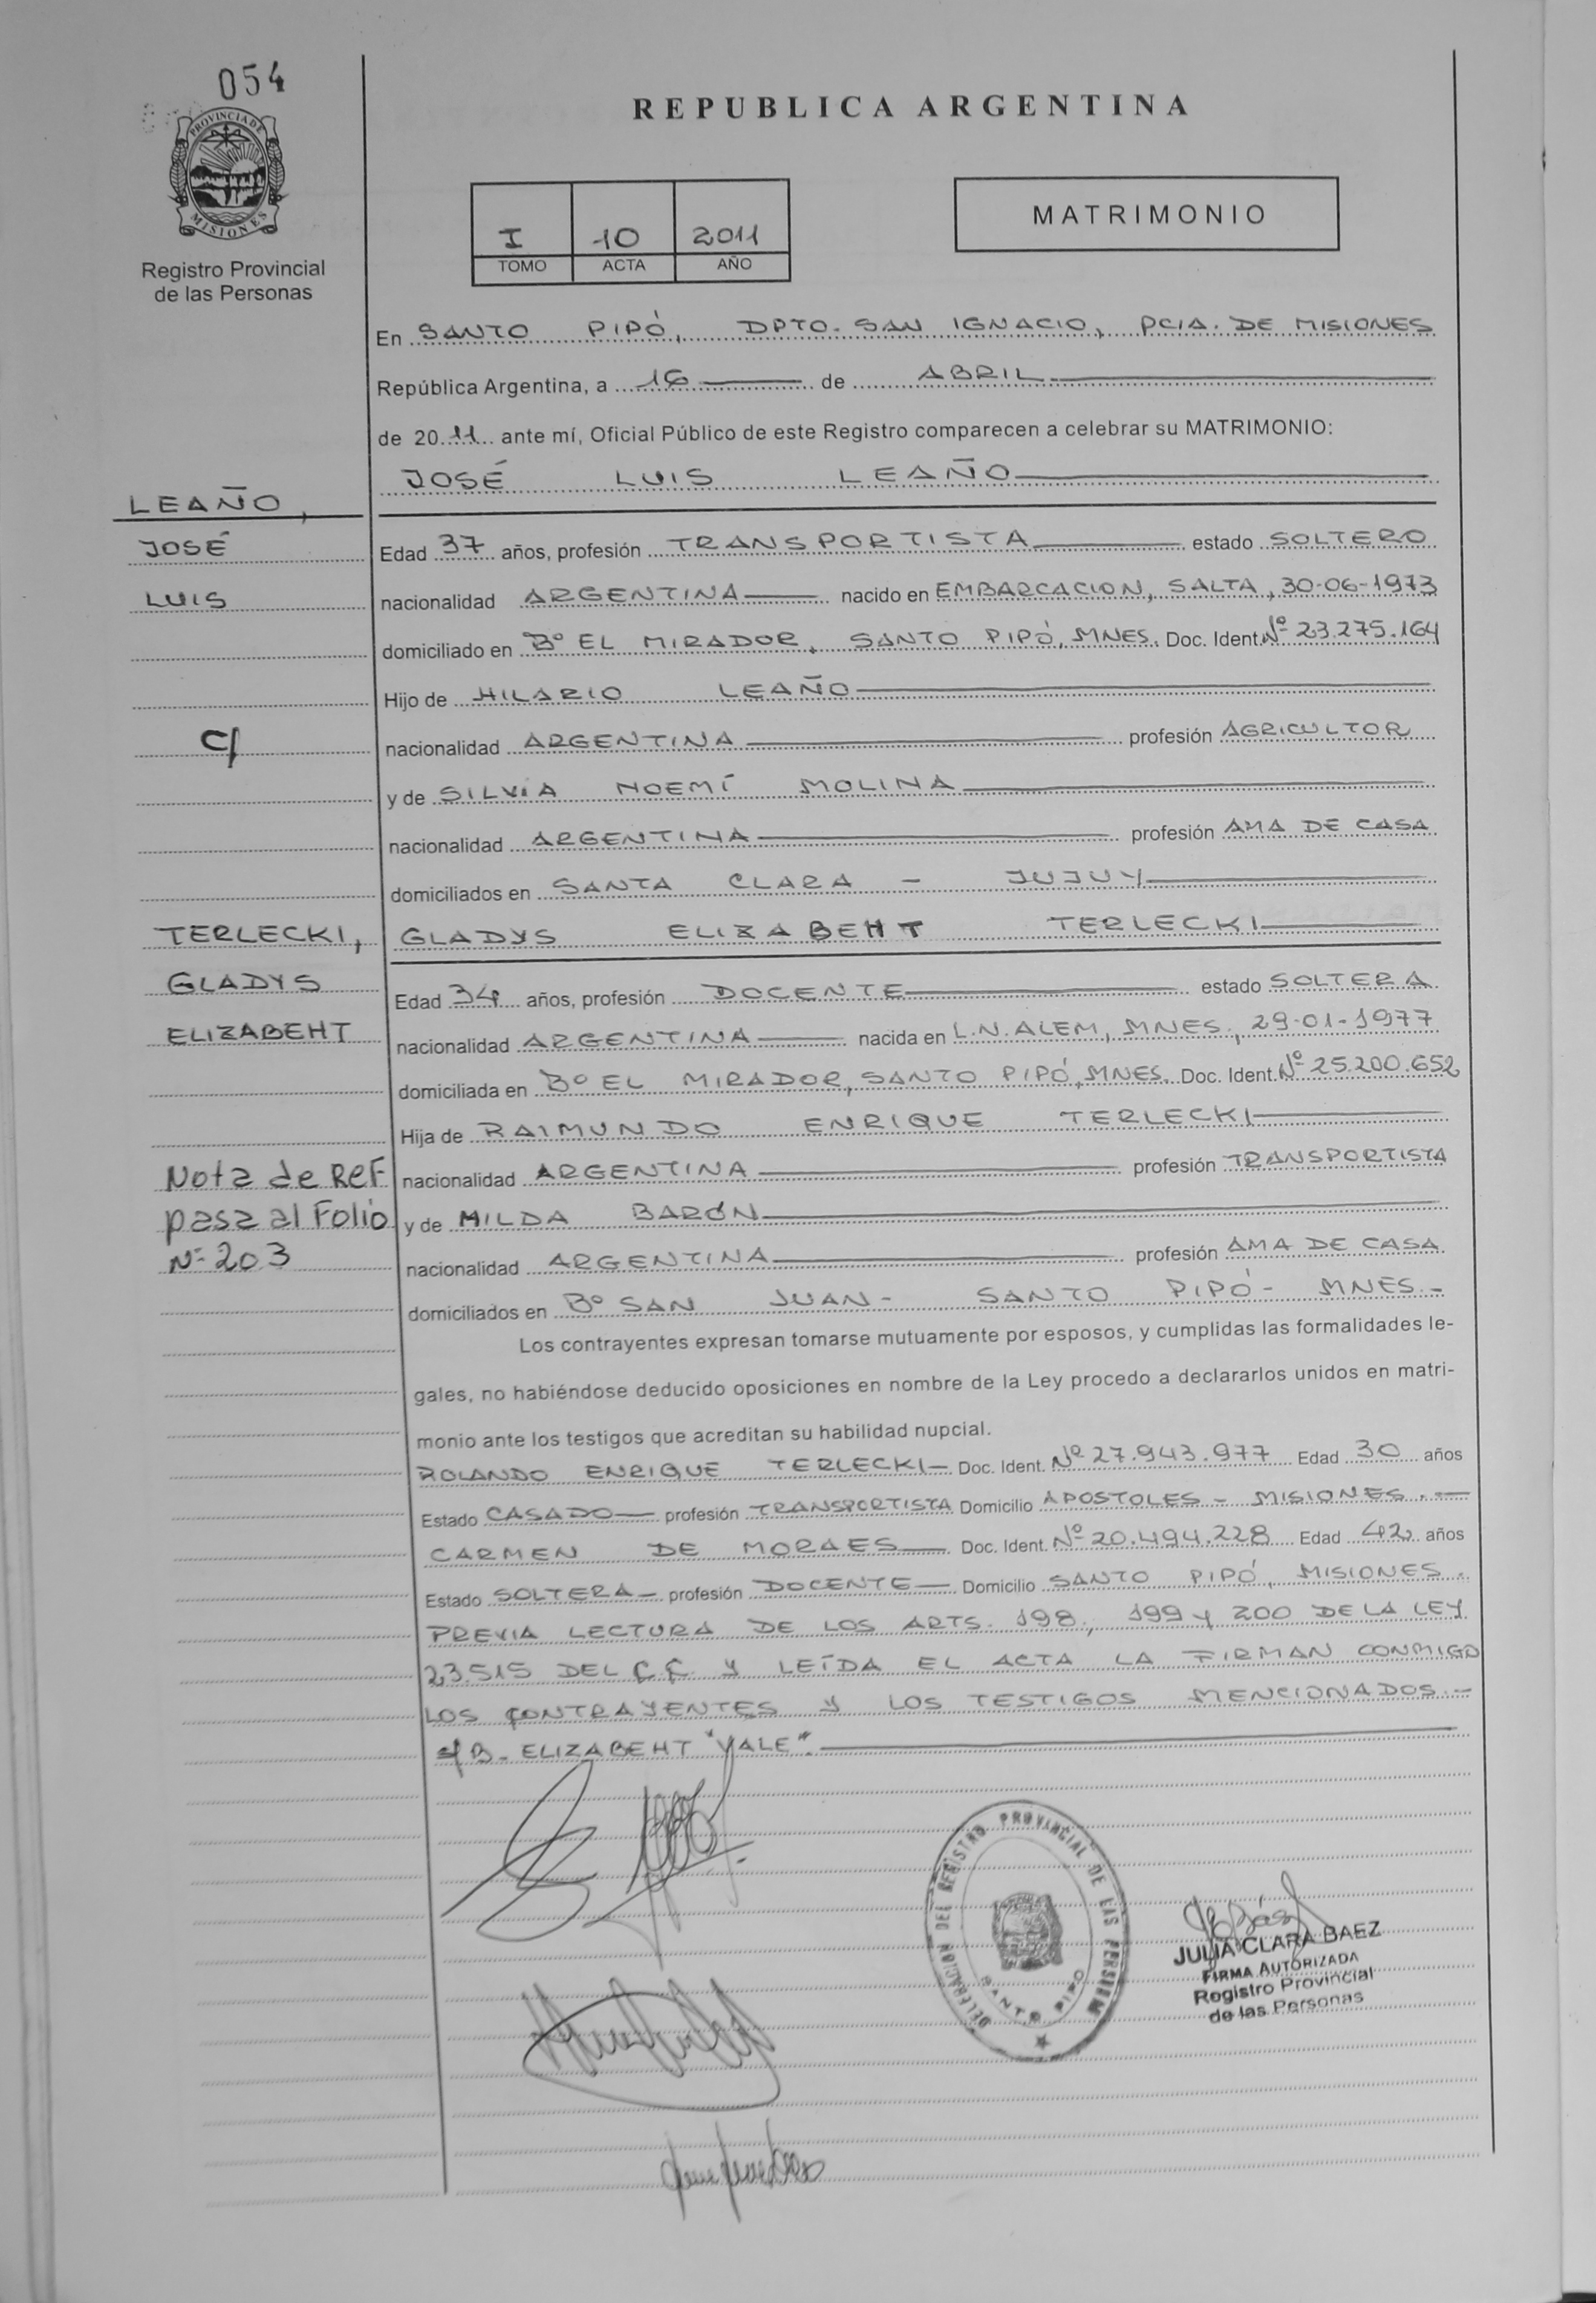 054
PROVINCIA DE
MISIONES
Registro Provincial
de las Personas
REPUBLICA ARGENTINA
I 10 2011
TOMO ACTA AÑO
MATRIMONIO
En SANTO PIPÓ, DPTO. SAN IGNACIO, PCIA. DE MISIONES
República Argentina, a 16 de ABRIL
de 2011 ante mí, Oficial Público de este Registro comparecen a celebrar su MATRIMONIO:
JOSÉ LUIS LEAÑO
LEAÑO,
JOSÉ
LUIS
C/
TERLECKI,
GLADYS
ELIZABEHT
Nota de Ref
pasa al Folio
Nº 203
Edad 37 años, profesión TRANSPORTISTA estado SOLTERO
nacionalidad ARGENTINA nacido en EMBARCACION, SALTA, 30-06-1973
domiciliado en Bº EL MIRADOR, SANTO PIPÓ, MNES. Doc. Ident. Nº 23.275.164
Hijo de HILARIO LEAÑO
nacionalidad ARGENTINA profesión AGRICULTOR
y de SILVIA NOEMÍ MOLINA
nacionalidad ARGENTINA profesión AMA DE CASA
domiciliados en SANTA CLARA - JUJUY
GLADYS ELIZABEHT TERLECKI
Edad 34 años, profesión DOCENTE estado SOLTERA
nacionalidad ARGENTINA nacida en L.N.ALEM, MNES., 29-01-1977
domiciliada en Bº EL MIRADOR, SANTO PIPÓ, MNES. Doc. Ident. Nº 25.200.652
Hija de RAIMUNDO ENRIQUE TERLECKI
nacionalidad ARGENTINA profesión TRANSPORTISTA
y de MILDA BARÓN
nacionalidad ARGENTINA profesión AMA DE CASA
domiciliados en Bº SAN JUAN - SANTO PIPÓ - MNES.-
Los contrayentes expresan tomarse mutuamente por esposos, y cumplidas las formalidades le-
gales, no habiéndose deducido oposiciones en nombre de la Ley procedo a declararlos unidos en matri-
monio ante los testigos que acreditan su habilidad nupcial.
ROLANDO ENRIQUE TERLECKI Doc. Ident. Nº 27.943.977 Edad 30 años
Estado CASADO profesión TRANSPORTISTA Domicilio APOSTOLES - MISIONES.-
CARMEN DE MORAES Doc. Ident. Nº 20.494.228 Edad 42 años
Estado SOLTERA profesión DOCENTE Domicilio SANTO PIPÓ, MISIONES.
PREVIA LECTURA DE LOS ARTS. 198, 199 y 200 DE LA LEY
23.515 DEL C.C. Y LEÍDA EL ACTA LA FIRMAN CONMIGO
LOS CONTRAYENTES Y LOS TESTIGOS MENCIONADOS.-
s/B- ELIZABEHT "VALE".
DELEGACION DEL REGISTRO PROVINCIAL DE LAS PERSONAS
SANTO PIPO
JULIA CLARA BAEZ
FIRMA AUTORIZADA
Registro Provincial
de las Personas